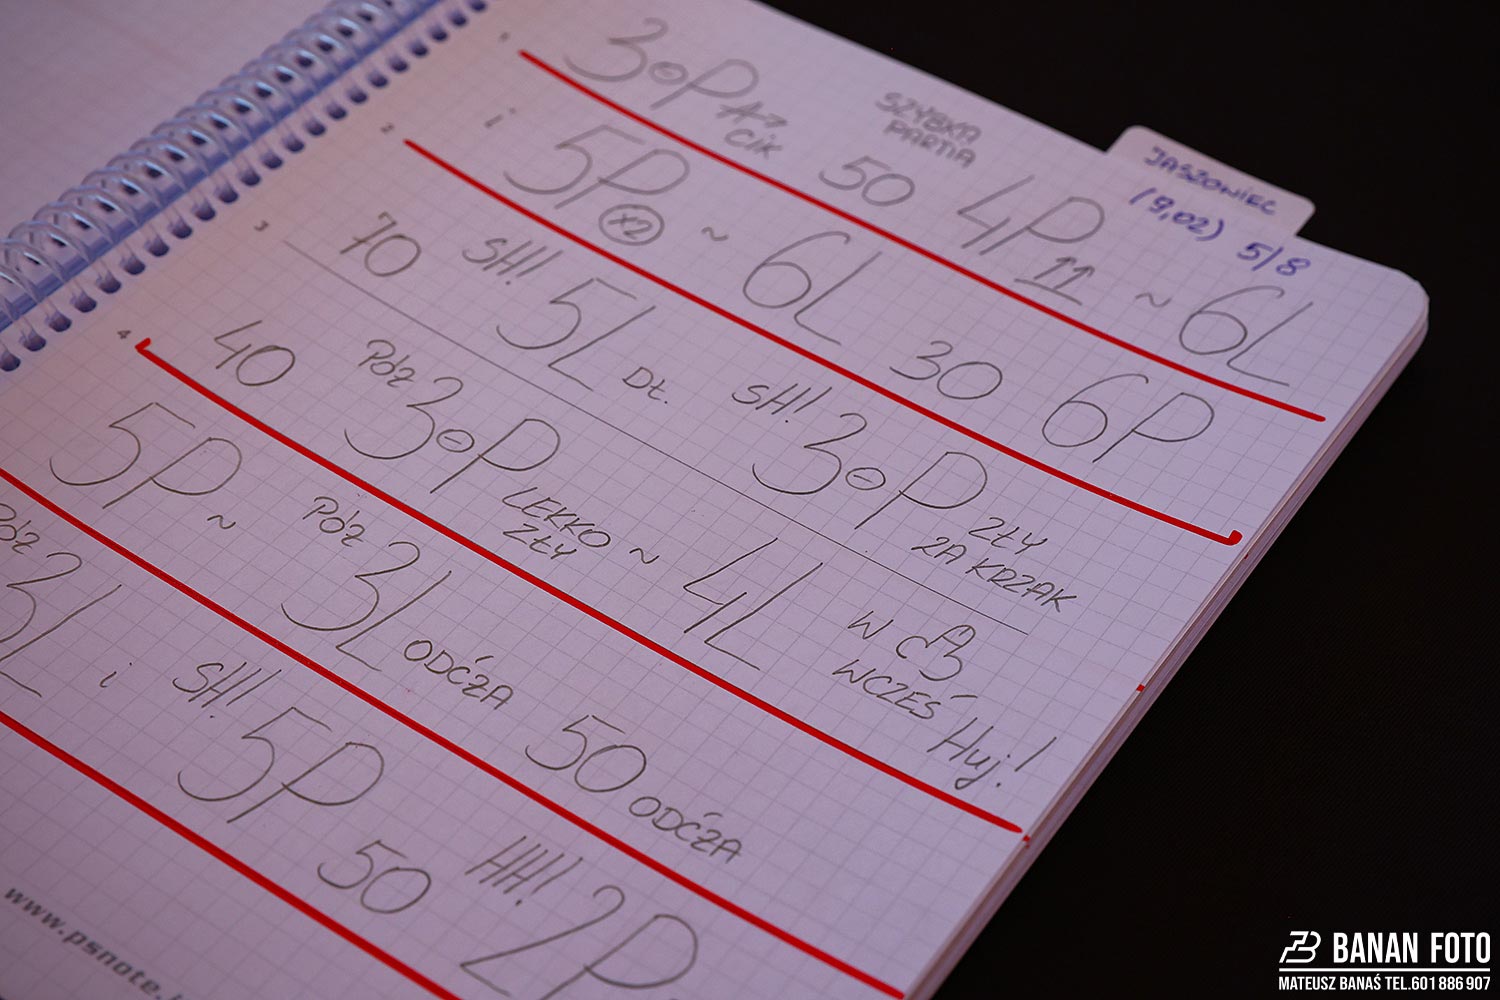 SZYBKA
PARTIA
JASZOWIEC
(9,02) 5/8
1
3⊖P AŻ CIK 50 4P ~ 6L
2
i 5P (x2) ~ 6L 30 6P
3
70 SH! 5L DŁ. SH! 3⊖P ZŁY ZA KRZAK
4
40 PÓŹ 3⊖P LEKKO ZŁY ~ 4L W WCZEŚ Huj!
5P ~ PÓŹ 3L ODĆŻA 50 ODĆŻA
PÓŹ 3L i SH! 5P 50 HH! 2P
www.psnote.
BANAN FOTO
MATEUSZ BANAŚ TEL.601 886 907